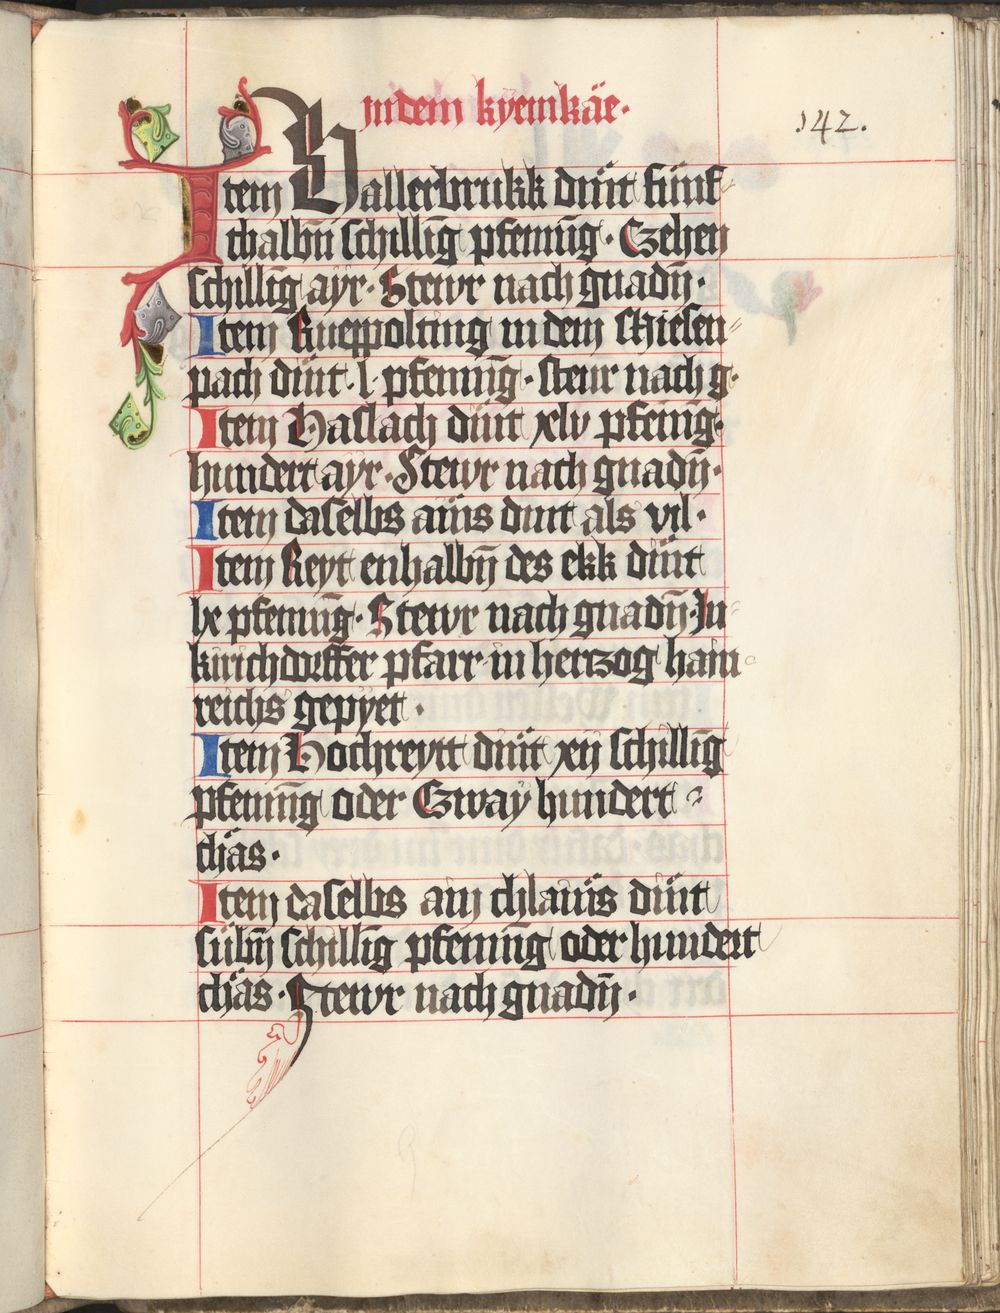 in dem kyemkäe·
.142.
Item Hallerbrukk diint fünf
thalbn̄ schilling pfenning · Czehen
schilling ayr · Stewr nach gnadn̄·
Item Rueppolting in dem schiesen⸗
pach diint · l · pfenning · steur nach g·
Item Haslach diint xlv pfening·
hundert ayr · Stewr nach gnadn̄·
Item daselbs ains dint als vil·
Item Reyt enhalbn̄ des ekk diint
lx pfenning · Stewr nach gnadn̄· In
kirichdorffer pfarr in herczog hain
reichs gepyet ·
Item Hochreytt diint xij schilling
pfenning oder Czway hundert
chäs·
Item daselbs ain chlaüs diint
sübn̄ schilling pfenning oder hundert
chäs · Stewr nach gnadn̄ ·